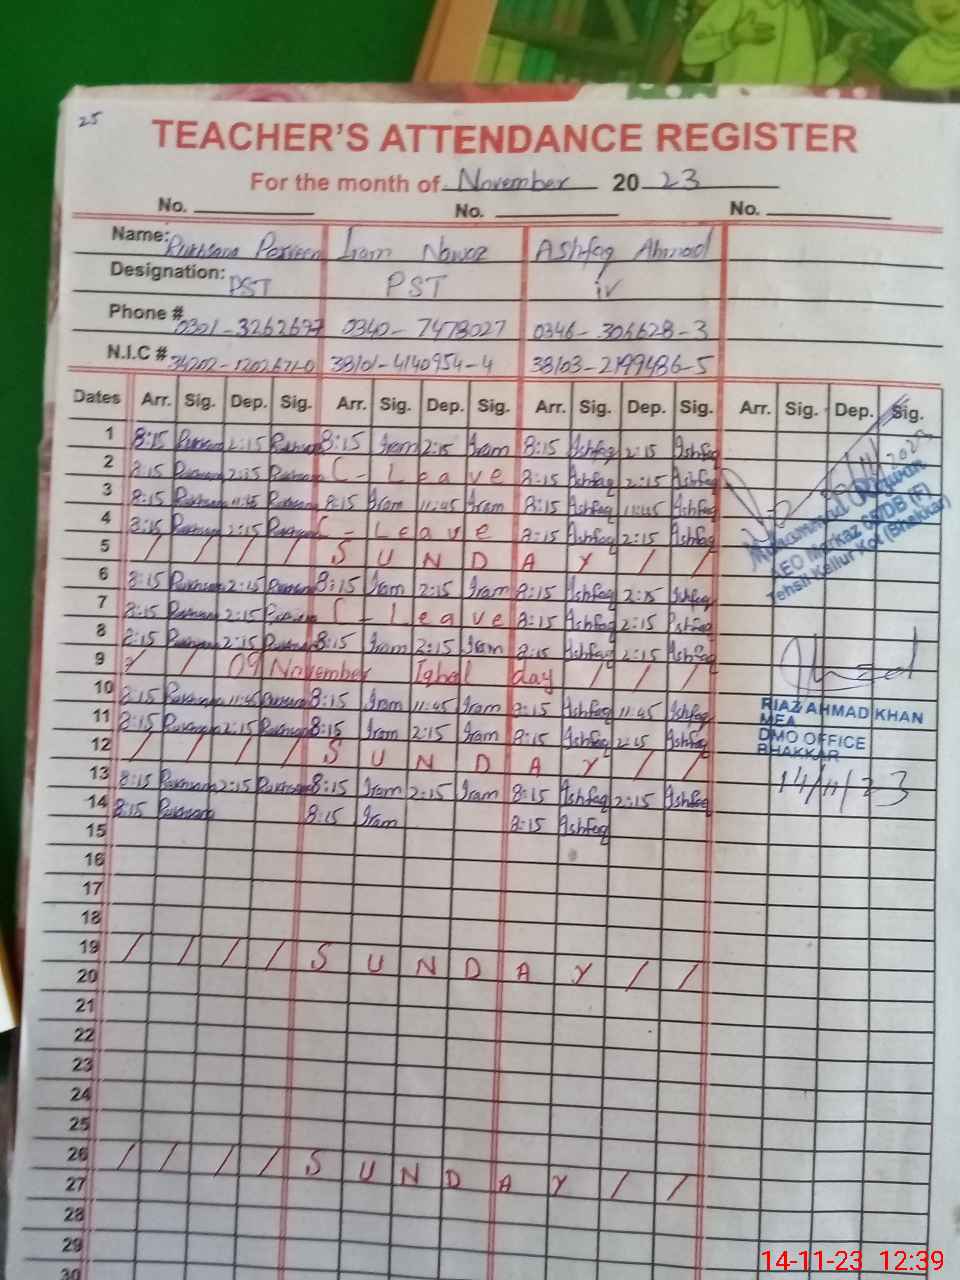 25
TEACHER'S ATTENDANCE REGISTER
For the month of November 20 23
No. No. No.
Name: Rukhsana Parveen Iram Nawaz Ashfaq Ahmad
Designation: PST PST iv
Phone # 0301-3262677 0340-7478027 0346-306628-3
N.I.C # 38101-4140954-4 38103-2199486-5
Dates Arr. Sig. Dep. Sig. Arr. Sig. Dep. Sig. Arr. Sig. Dep. Sig. Arr. Sig. Dep. Sig.
1 8:15 Rukhsana 2:15 Rukhsana 8:15 Iram 2:15 Iram 8:15 Ashfaq 2:15 Ashfaq
2 8:15 Rukhsana 2:15 Rukhsana C - Leave 8:15 Ashfaq 2:15 Ashfaq
3 8:15 Rukhsana 11:45 Rukhsana 8:15 Iram 11:45 Iram 8:15 Ashfaq 11:45 Ashfaq
4 8:15 Rukhsana 2:15 Rukhsana C - Leave 8:15 Ashfaq 2:15 Ashfaq
5 / / / / S U N D A Y / /
6 8:15 Rukhsana 2:15 Rukhsana 8:15 Iram 2:15 Iram 8:15 Ashfaq 2:15 Ashfaq
7 8:15 Rukhsana 2:15 Rukhsana C - Leave 8:15 Ashfaq 2:15 Ashfaq
8 8:15 Rukhsana 2:15 Rukhsana 8:15 Iram 2:15 Iram 8:15 Ashfaq 2:15 Ashfaq
9 / / 09 November Iqbal day / / /
10 8:15 Rukhsana 11:45 Rukhsana 8:15 Iram 11:45 Iram 8:15 Ashfaq 11:45 Ashfaq
11 8:15 Rukhsana 2:15 Rukhsana 8:15 Iram 2:15 Iram 8:15 Ashfaq 2:15 Ashfaq
12 / / / / S U N D A Y / /
13 8:15 Rukhsana 2:15 Rukhsana 8:15 Iram 2:15 Iram 8:15 Ashfaq 2:15 Ashfaq
14 8:15 Rukhsana 8:15 Iram 8:15 Ashfaq
15
16
17
18
19 / / / / S U N D A Y / /
20
21
22
23
24
25
26 / / / / S U N D A Y / /
27
28
29
30
Muhammad
AEO Markaz (F)
Tehsil Kallur Kot (Bhakkar)
RIAZ AHMAD KHAN
MEA
DMO OFFICE
BHAKKAR
14/11/23
14-11-23 12:39